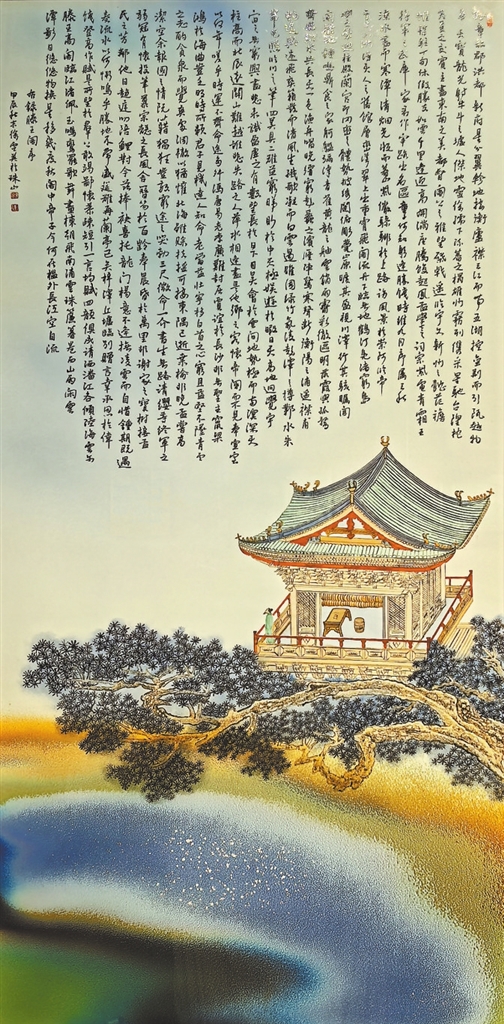 豫章故郡洪都新府星分翼軫地接衡廬襟三江而帶五湖控蠻荊而引甌越物
華天寶龍光射牛斗之墟人傑地靈徐孺下陳蕃之榻雄州霧列俊采星馳臺隍枕
夷夏之交賓主盡東南之美都督閻公之雅望棨戟遙臨宇文新州之懿範襜
帷暫駐十旬休假勝友如雲千里逢迎高朋滿座騰蛟起鳳孟學士之詞宗紫電青霜王
將軍之武庫家君作宰路出名區童子何知躬逢勝餞時維九月序屬三秋
潦水盡而寒潭清煙光凝而暮山紫儼驂騑於上路訪風景於崇阿臨帝
子之長洲得天人之舊館層巒聳翠上出重霄飛閣流丹下臨無地鶴汀鳧渚窮島
嶼之縈迴桂殿蘭宮即岡巒之體勢披繡闥俯雕甍山原曠其盈視川澤紆其駭矚閭
閻撲地鐘鳴鼎食之家舸艦彌津青雀黃龍之舳雲銷雨霽彩徹區明落霞與孤鶩
齊飛秋水共長天一色漁舟唱晚響窮彭蠡之濱雁陣驚寒聲斷衡陽之浦遙襟甫
暢逸興遄飛爽籟發而清風生纖歌凝而白雲遏睢園綠竹氣凌彭澤之樽鄴水朱
華光照臨川之筆四美具二難並窮睇眄於中天極娛遊於暇日天高地迥覺宇
宙之無窮興盡悲來識盈虛之有數望長安於日下目吳會於雲間地勢極而南溟深天
柱高而北辰遠關山難越誰悲失路之人萍水相逢盡是他鄉之客懷帝閽而不見奉宣室
以何年嗟乎時運不齊命途多舛馮唐易老李廣難封屈賈誼於長沙非無聖主竄梁
鴻於海曲豈乏明時所賴君子見機達人知命老當益壯寧移白首之心窮且益堅不墜青雲
之志酌貪泉而覺爽處涸轍以猶懽北海雖賒扶搖可接東隅已逝桑榆非晚孟嘗高
潔空餘報國之情阮籍猖狂豈效窮途之哭勃三尺微命一介書生無路請纓等終軍之
弱冠有懷投筆慕宗愨之長風舍簪笏於百齡奉晨昏於萬里非謝家之寶樹接孟
氏之芳鄰他日趨庭叨陪鯉對今茲捧袂喜托龍門楊意不逢撫凌雲而自惜鍾期既遇
奏流水以何慚嗚乎勝地不常盛筵難再蘭亭已矣梓澤丘墟臨別贈言幸承恩於偉
餞登高作賦是所望於群公敢竭鄙懷恭疏短引一言均賦四韻俱成請灑潘江各傾陸海云爾
滕王高閣臨江渚佩玉鳴鸞罷歌舞畫棟朝飛南浦雲珠簾暮捲西山雨閑雲
潭影日悠悠物換星移幾度秋閣中帝子今何在檻外長江空自流
右錄滕王閣序
甲辰秋於珠山